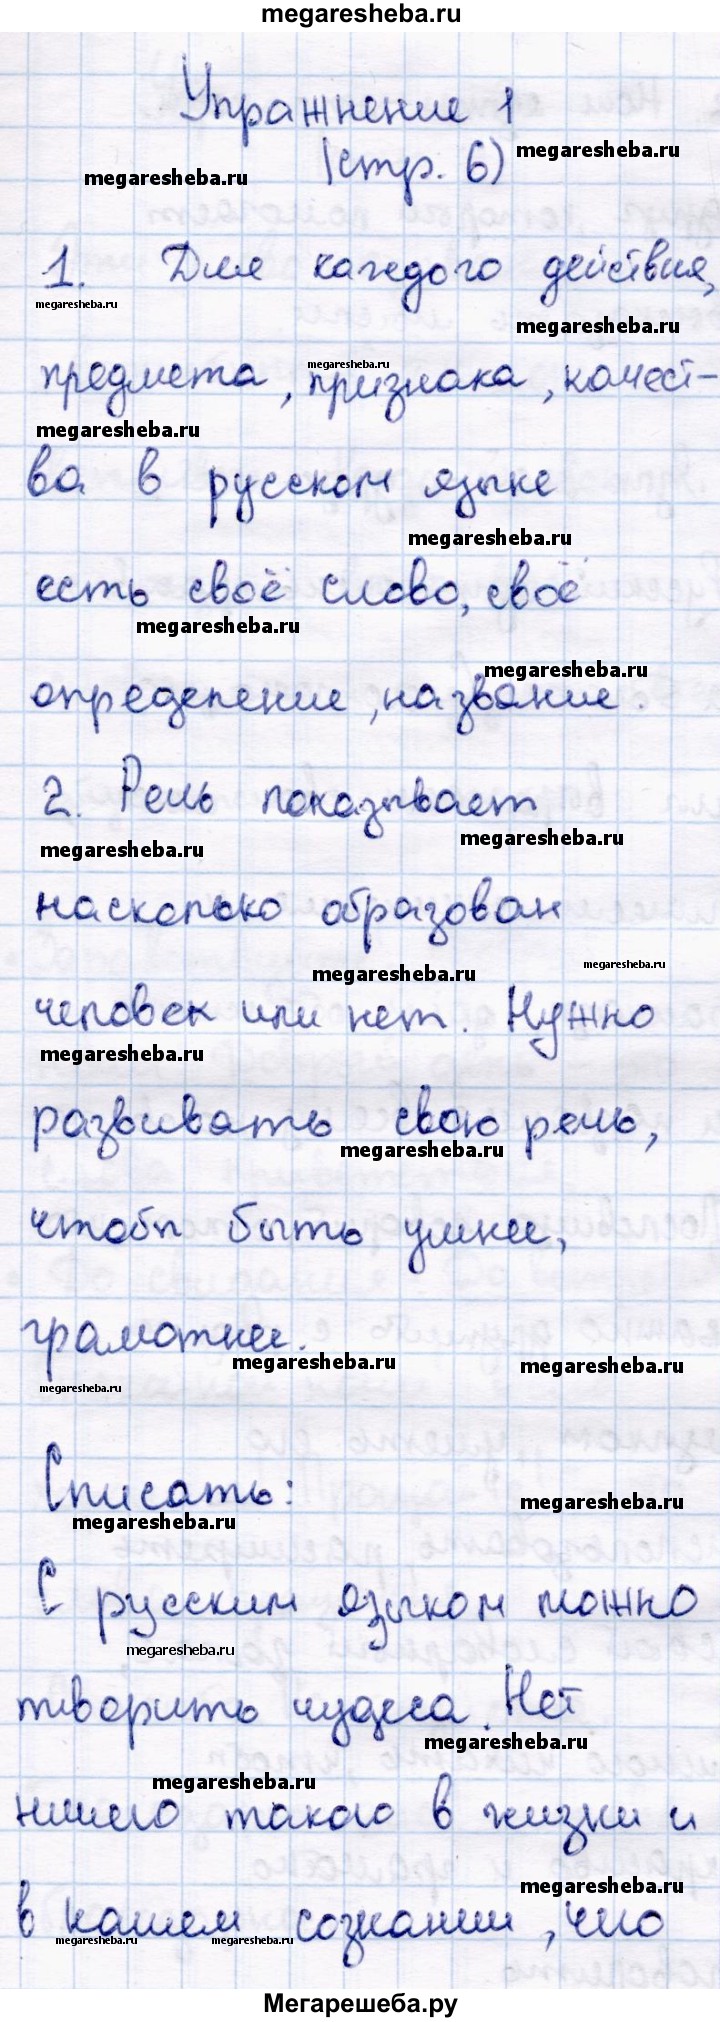 megaresheba.ru
Упражнение 1
megaresheba.ru
(стр. 6)
megaresheba.ru
1. Для каждого действия,
megaresheba.ru
megaresheba.ru
megaresheba.ru
предмета, признака, качест-
megaresheba.ru
ва в русском языке
megaresheba.ru
есть своё слово, своё
megaresheba.ru
megaresheba.ru
определение, название.
2. Речь показывает
megaresheba.ru
megaresheba.ru
насколько образован
megaresheba.ru
megaresheba.ru
человек или нет. Нужно
megaresheba.ru
развивать свою речь,
megaresheba.ru
чтобы быть умнее,
грамотнее.
megaresheba.ru
megaresheba.ru
megaresheba.ru
Списать:
megaresheba.ru
megaresheba.ru
С русским языком можно
megaresheba.ru
творить чудеса. Нет
megaresheba.ru
megaresheba.ru
ничего такого в жизни и
megaresheba.ru
в нашем сознании, чего
megaresheba.ru
megaresheba.ru
Мегарешеба.ру